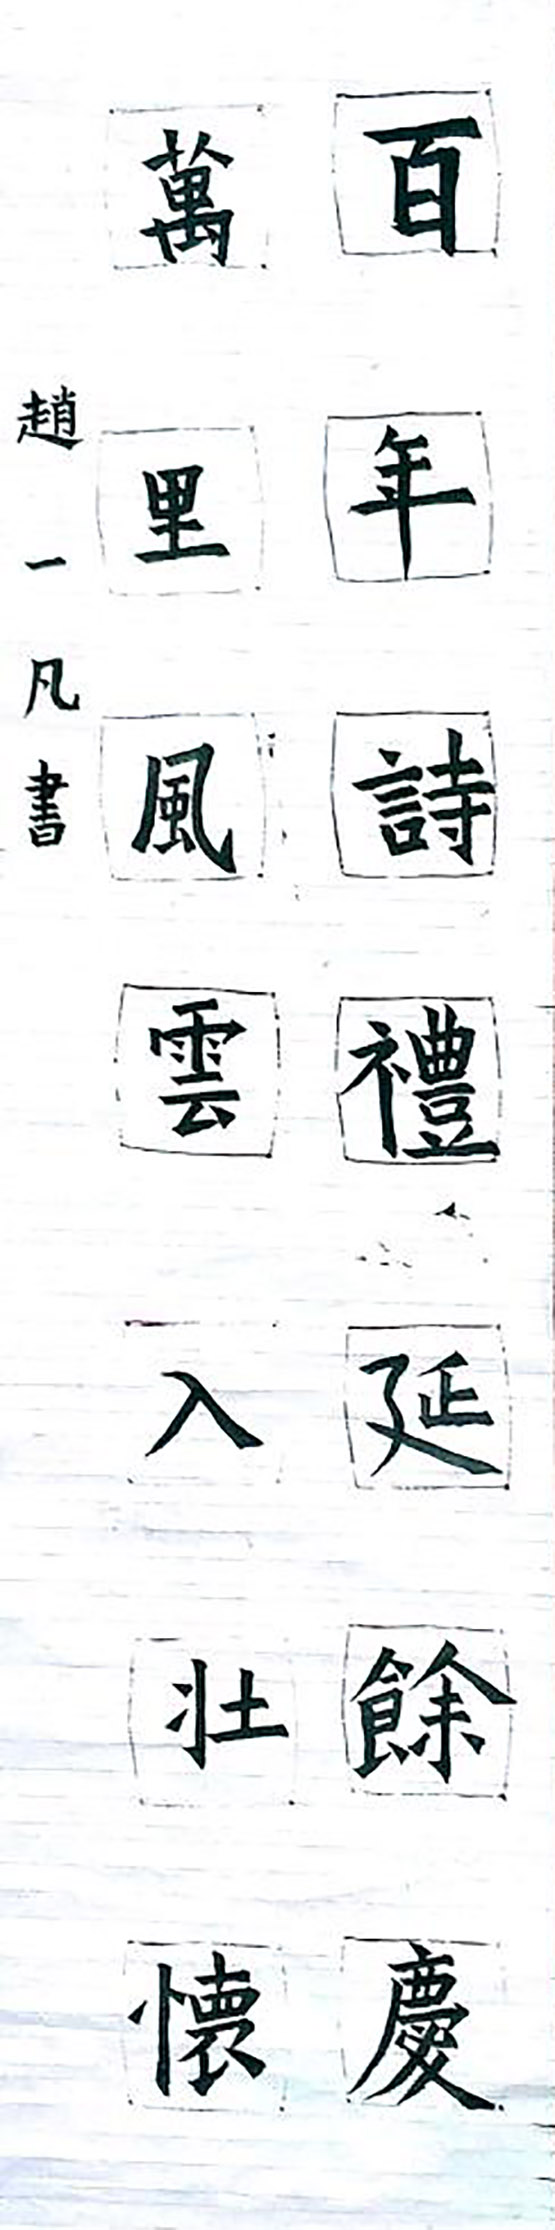 百年詩禮延餘慶
萬里風雲入壯懷
趙一凡書